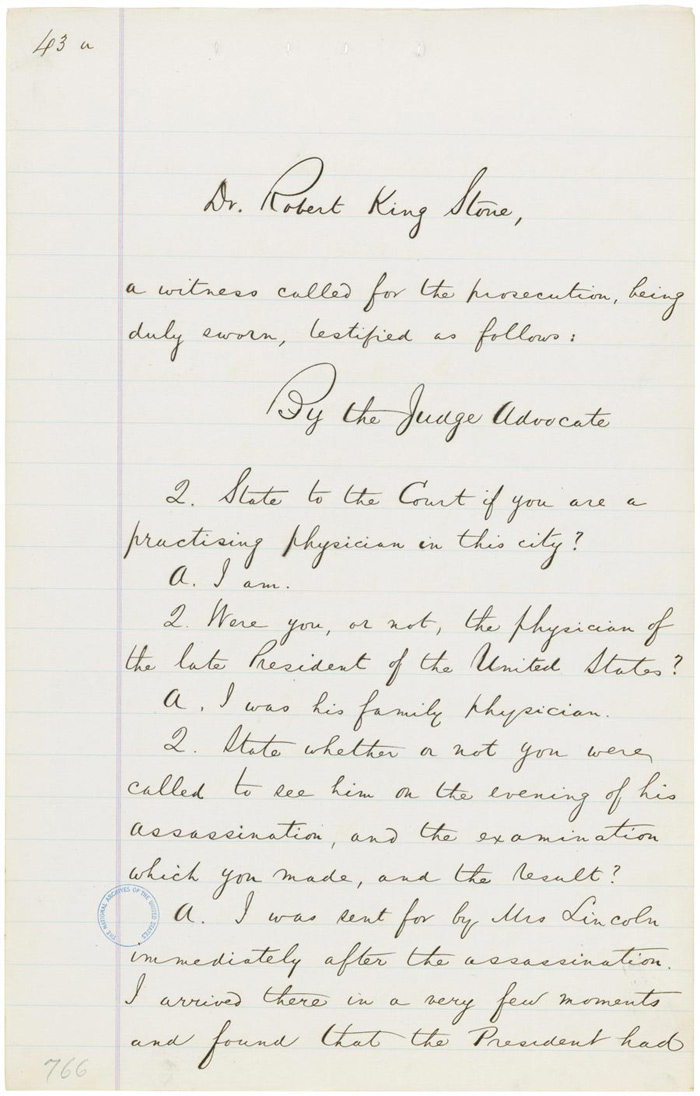 43 a
Dr. Robert King Stone,
a witness called for the prosecution, being
duly sworn, testified as follows:
By the Judge Advocate
Q. State to the Court if you are a
practising physician in this city?
A. I am.
Q. Were you, or not, the physician of
the late President of the United States?
A. I was his family physician.
Q. State whether or not you were
called to see him on the evening of his
assassination, and the examination
which you made, and the result?
A. I was sent for by Mrs Lincoln
immediately after the assassination.
I arrived there in a very few moments
and found that the President had
THE NATIONAL ARCHIVES OF THE UNITED STATES
766